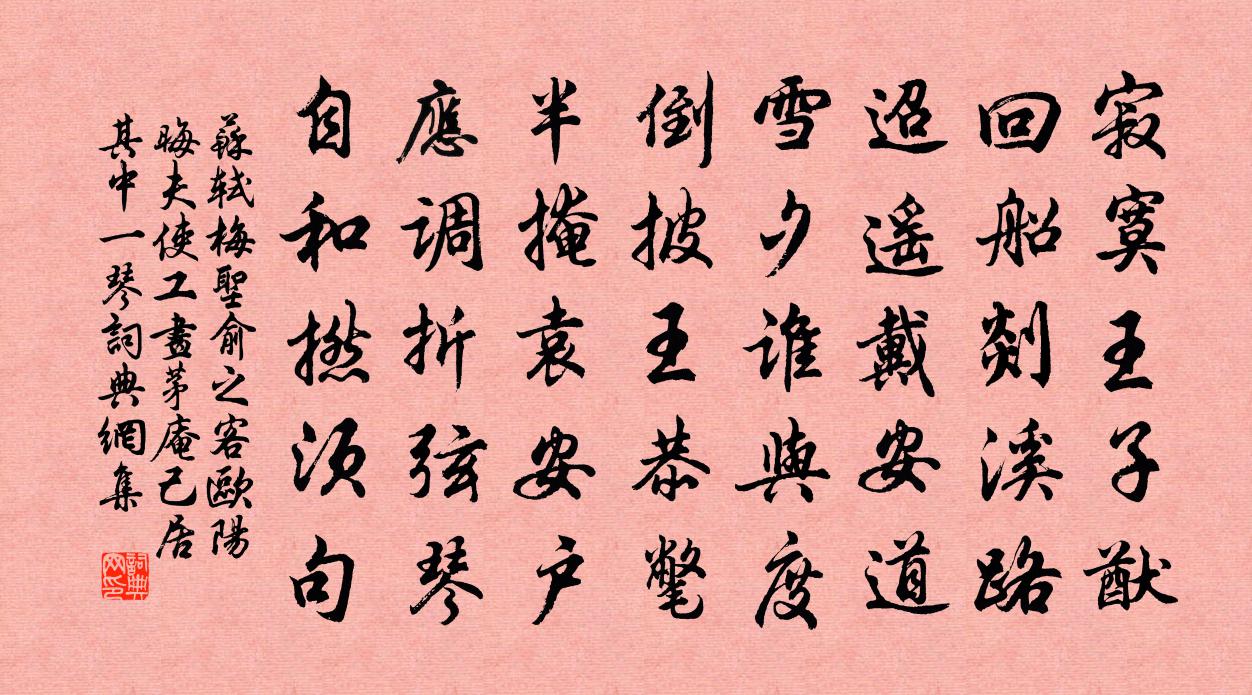 寂寞王子猷
回船剡溪路
迢遥戴安道
雪夕谁與度
倒披王恭氅
半掩袁安户
應调折弦琴
自和撚须句
蘇軾梅聖俞之客歐陽
晦夫使工畫茅庵己居
其中一琴詞典網集
詞典
网印